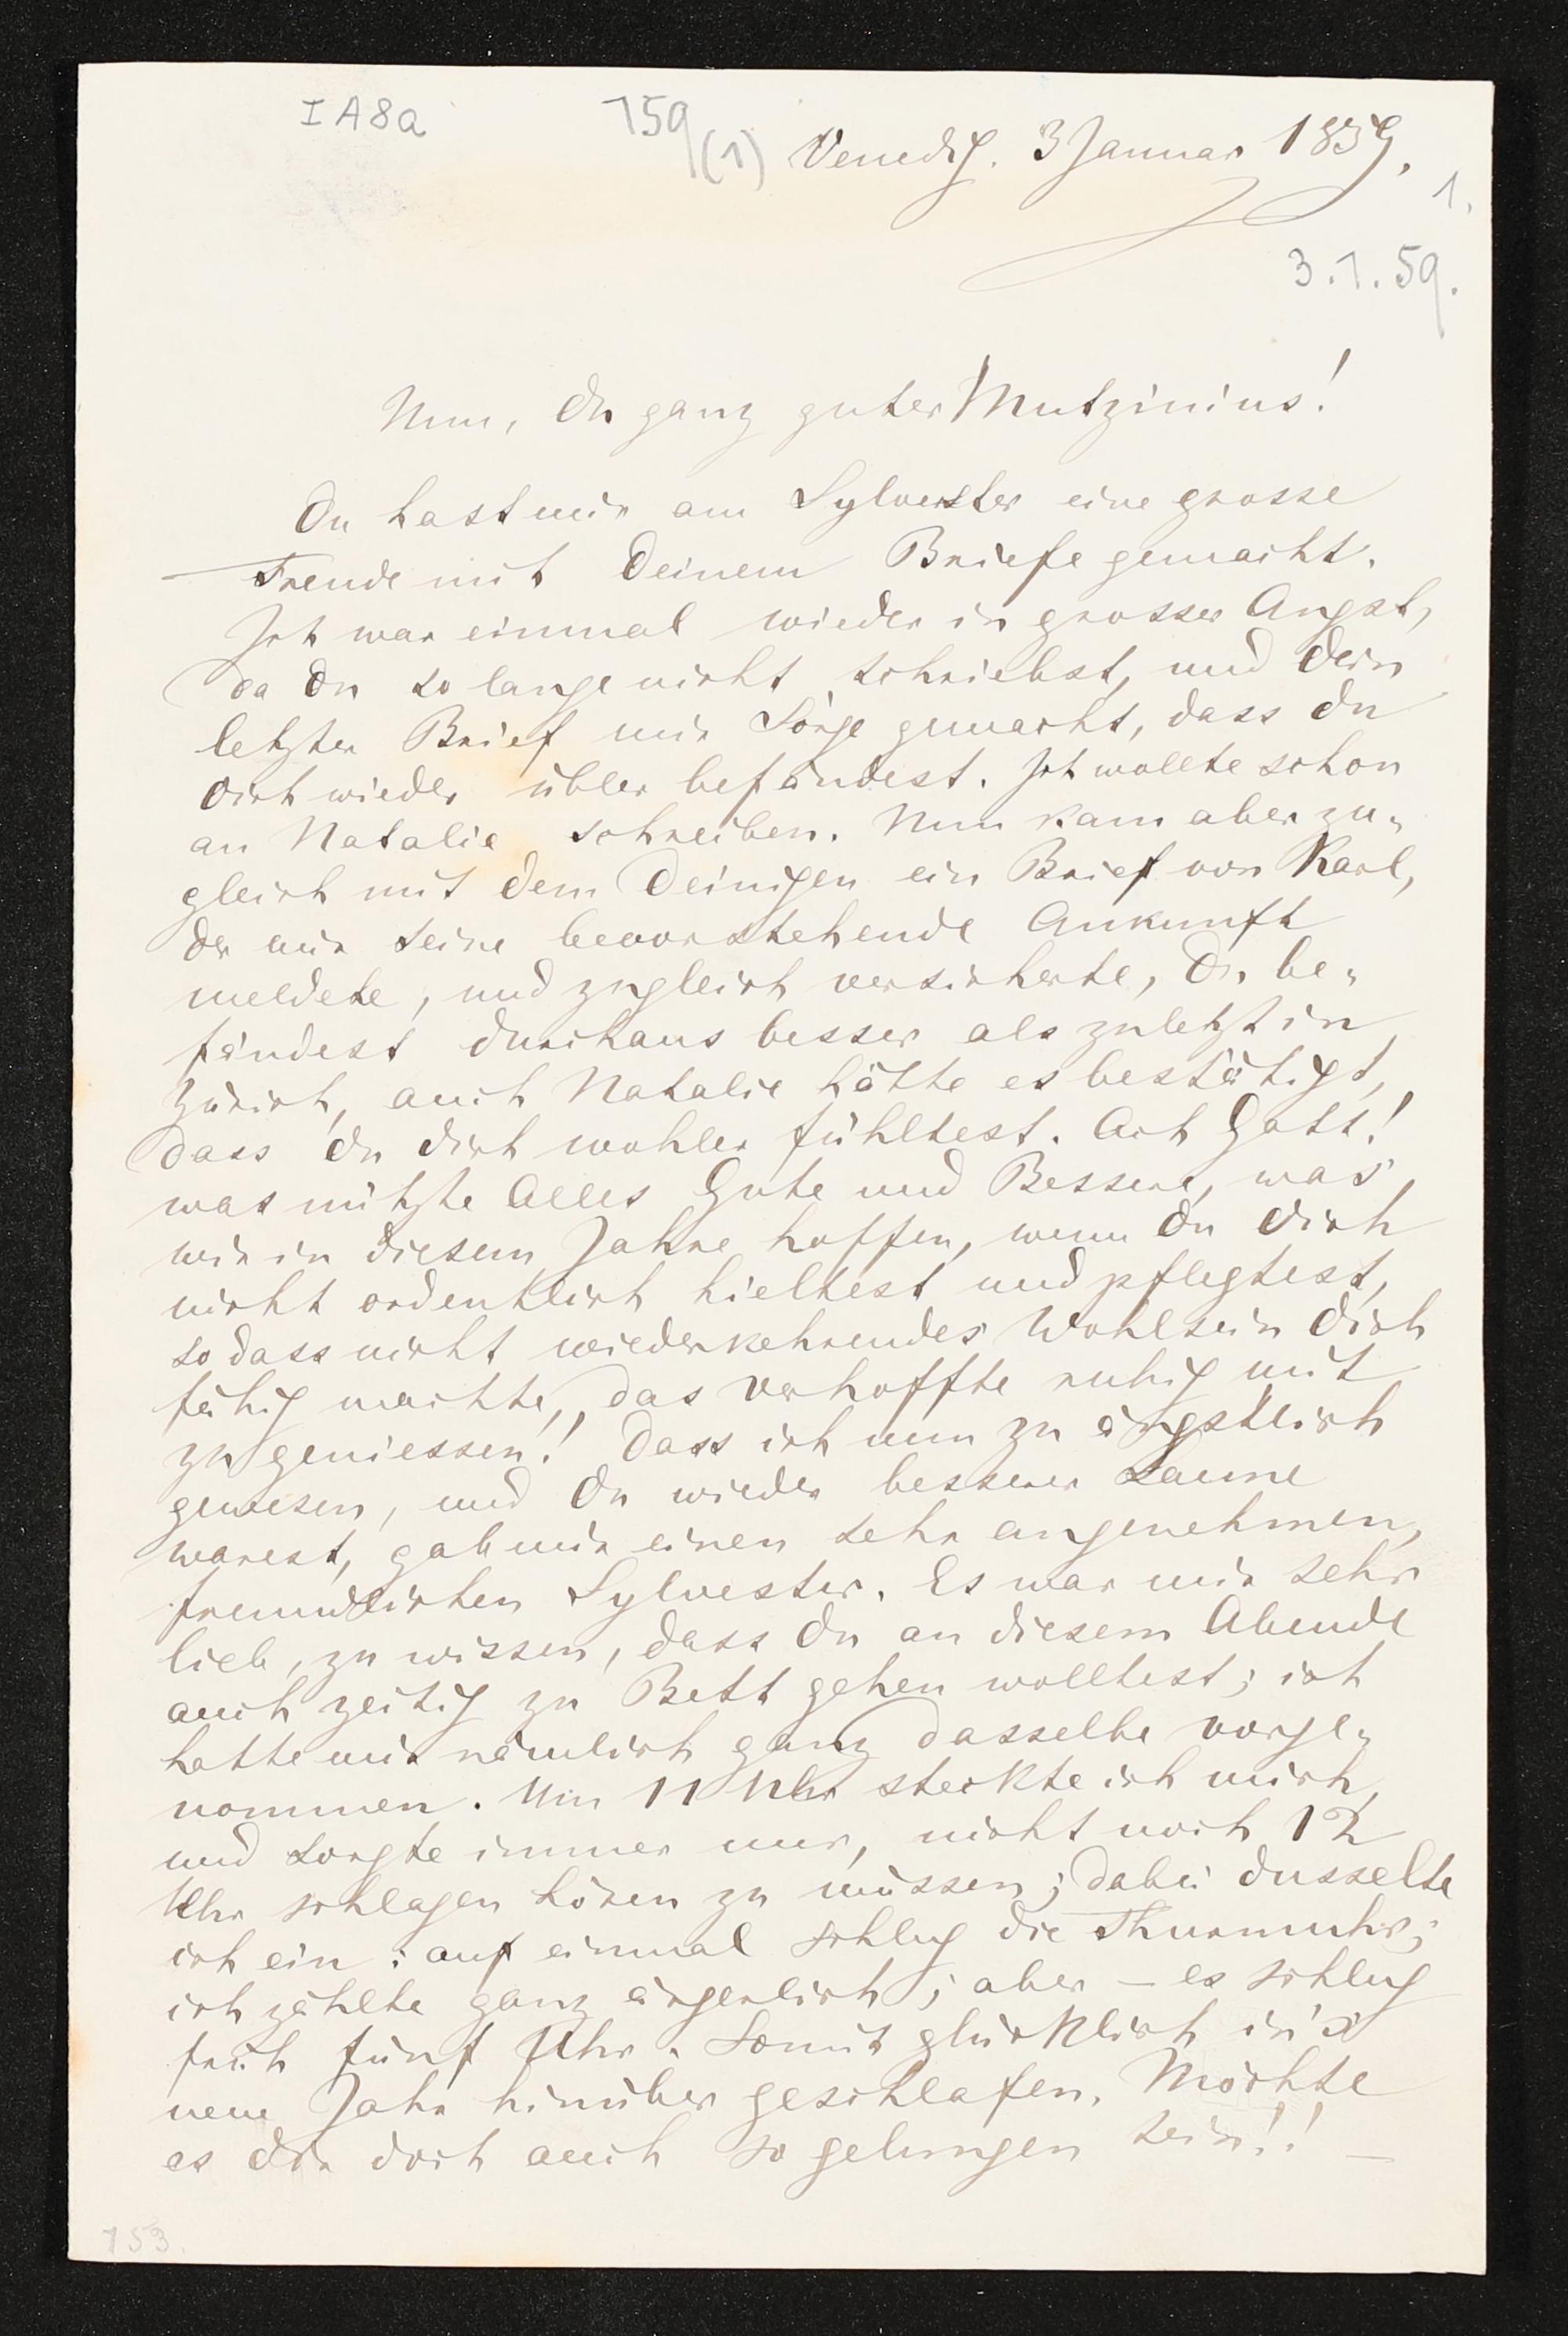 I A 8 a
159 (1) Venedig. 3 Januar 1859.
1.
3.1.59.
Nun, Du ganz guter Mutzinius!
Du hast mir am Sylvester eine grosse
Freude mit Deinem Briefe gemacht.
Ich war einmal wieder in grosser Angst,
da Du so lange nicht schriebst, und Dein
letzter Brief mir Sorge gemacht, dass Du
Dich wieder übler befändest. Ich wollte schon
an Natalie schreiben. Nun kam aber zu-
gleich mit dem Deinigen ein Brief von Karl,
der mir seine bevorstehende Ankunft
meldete, und zugleich versicherte, Du be-
fändest durchaus besser als zuletzt in
Zürich, auch Natalie hätte es bestätigt,
dass Du Dich wohler fühltest. Ach Gott!
was nützte Alles Gute und Bessere, was
wir in diesem Jahre hoffen, wenn Du Dich
nicht ordentlich hieltest und pflegtest,
so dass nicht wiederkehrendes Wohlsein Dich
fähig machte, das Verhoffte ruhig mit
zu geniessen! Dass ich nun zu ängstlich
gewesen, und Du wieder besserer Laune
warest, gab mir einen sehr angenehmen,
freundlichen Sylvester. Es war mir sehr
lieb, zu wissen, dass Du an diesem Abende
auch zeitig zu Bett gehen wolltest; ich
hatte mir nämlich ganz dasselbe vorge-
nommen. Um 11 Uhr steckte ich mich,
und sorgte immer nur, nicht noch 12
Uhr schlagen hören zu müssen; dabei dusselte
ich ein: auf einmal schlug die Thurmuhr;
ich zählte ganz ärgerlich; aber — es schlug
früh fünf Uhr. Somit glücklich in's
neue Jahr hinüber geschlafen. Möchte
es Dir doch auch so gelungen sein!! —
153.